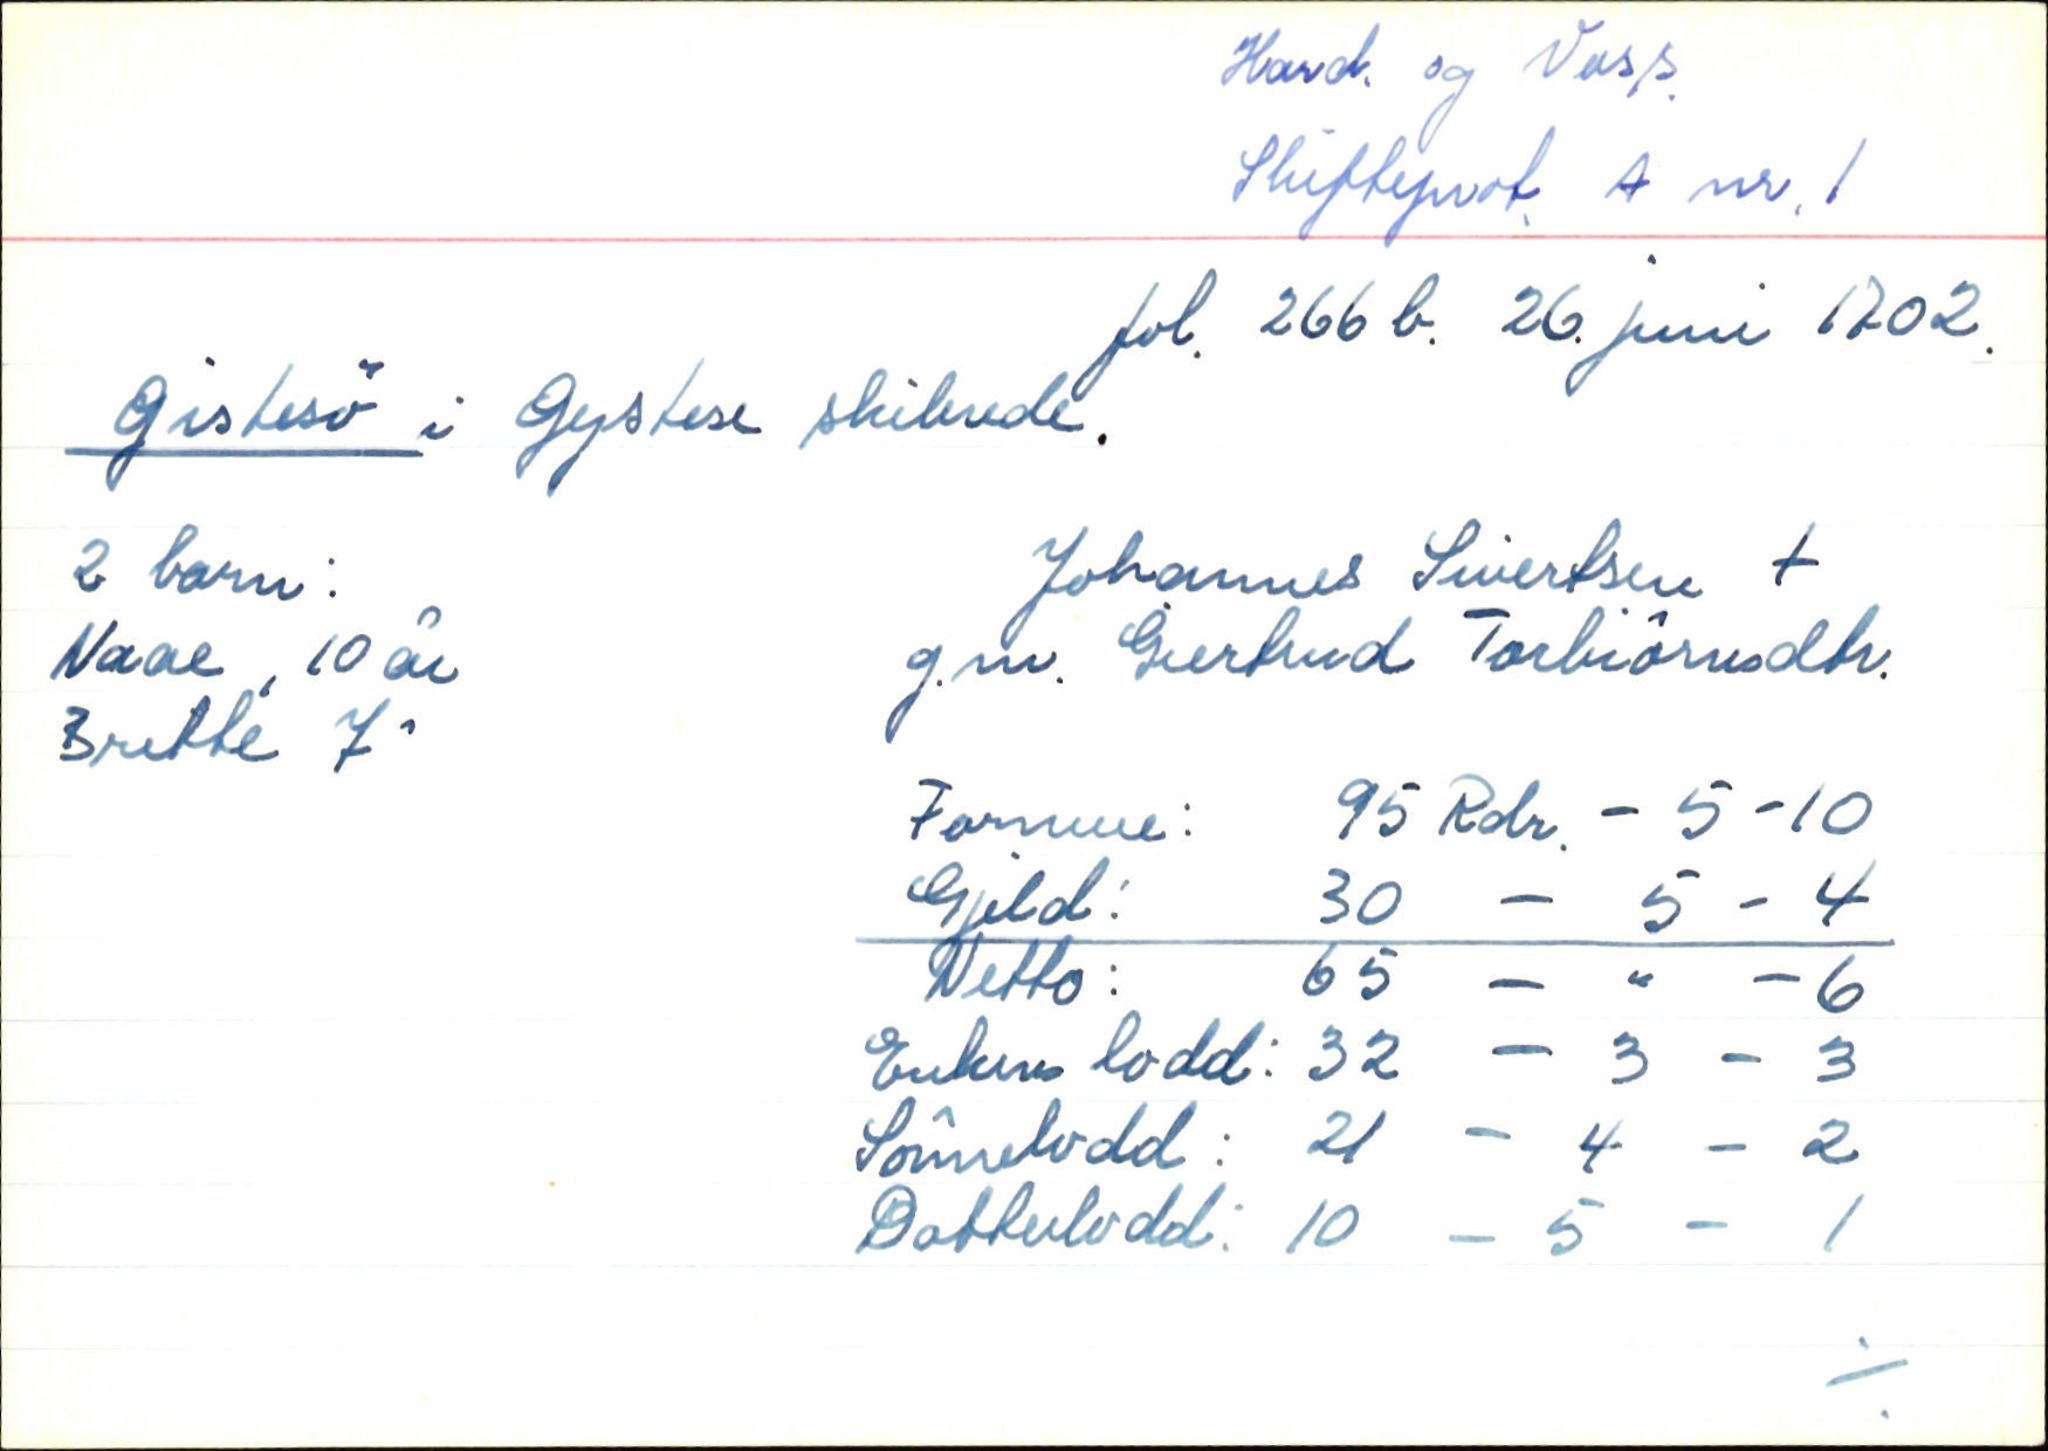 Hard. og Voss.
Skifteprot. A nr. 1
fol. 266 b. 26. juni 1702.
Gistesö i Gystese skibrede.
2 barn:
Naae, 10 år
Britte 7"
Johannes Sivertsen +
g.m. Giertrud Torbiörnsdtr.
Formue: 95 Rdr. - 5 - 10
Gjeld: 30 - 5 - 4
Netto: 65 - " - 6
Enkens lodd: 32 - 3 - 3
Sönnelodd: 21 - 4 - 2
Dotterlodd: 10 - 5 - 1
./.